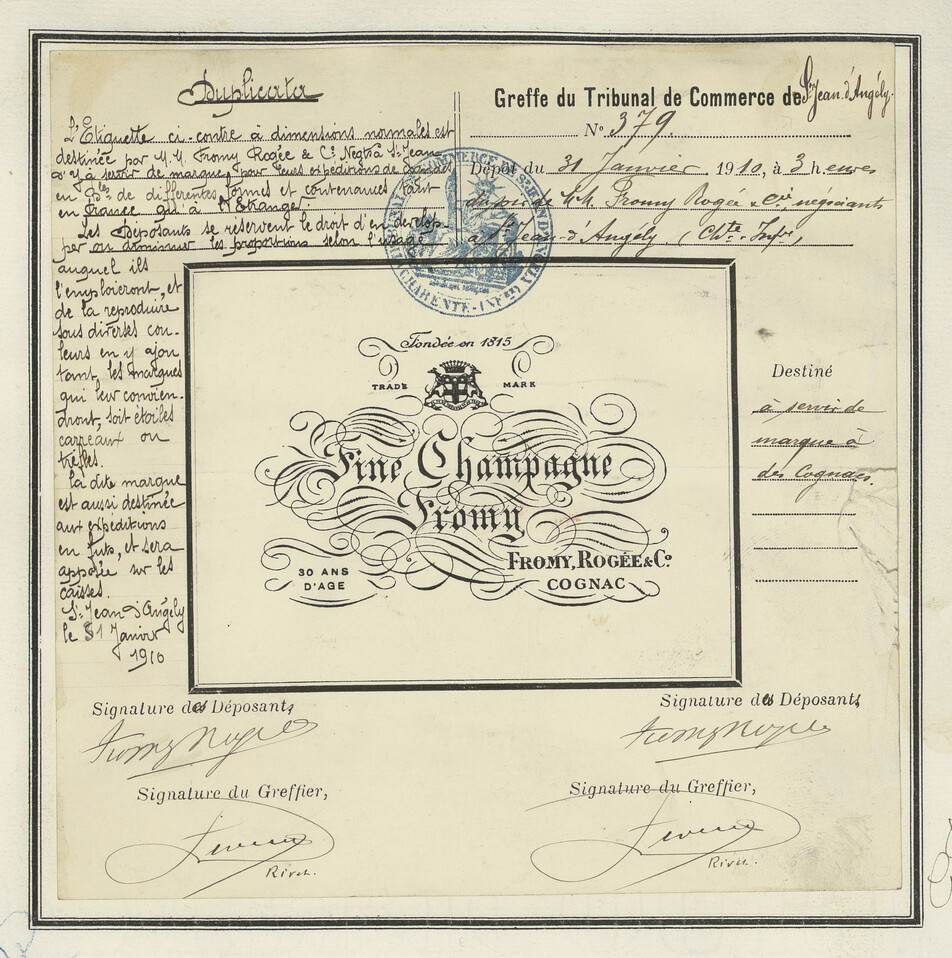 Duplicata
L'Etiquette ci-contre à dimensions normales est
destinée par M.M. Fromy Rogée & Cie Negts à St Jean
d'y à servir de marque, pour leurs expéditions de Cognacs
en Bles de différentes formes et contenances tant
en France qu'à l'Etranger.
Les Déposants se réservent le droit d'en dévelop-
per ou diminuer les proportions selon l'usage
auquel ils
l'emploieront, et
de la reproduire
sous diverses cou-
leurs en y ajou
tant, les marques
qui leur convien-
dront, soit étoiles
carreaux ou
trèfles.
La dite marque
est aussi destinée
aux expéditions
en futs, et sera
apposée sur les
caisses.
St Jean d'Angély
le 31 Janvier
1910
Greffe du Tribunal de Commerce de St Jean d'Angély.
No 379.
Dépôt du 31 Janvier 1910, à 3 heures
du soir de MM. Fromy Rogée & Cie négociants
à St Jean-d'Angély, (Chte-Infre)
Fondée en 1815
TRADE MARK
Fine Champagne
Fromy
FROMY, ROGÉE & Co
COGNAC
30 ANS
D'AGE
Destiné
à servir de
marque à
des Cognacs.
Signature des Déposants
Fromy Rogée
Signature du Greffier,
Rivet.
Signature des Déposants
Fromy Rogée
Signature du Greffier,
Rivet.